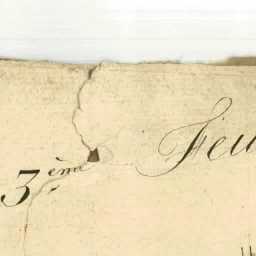 3ème Feu